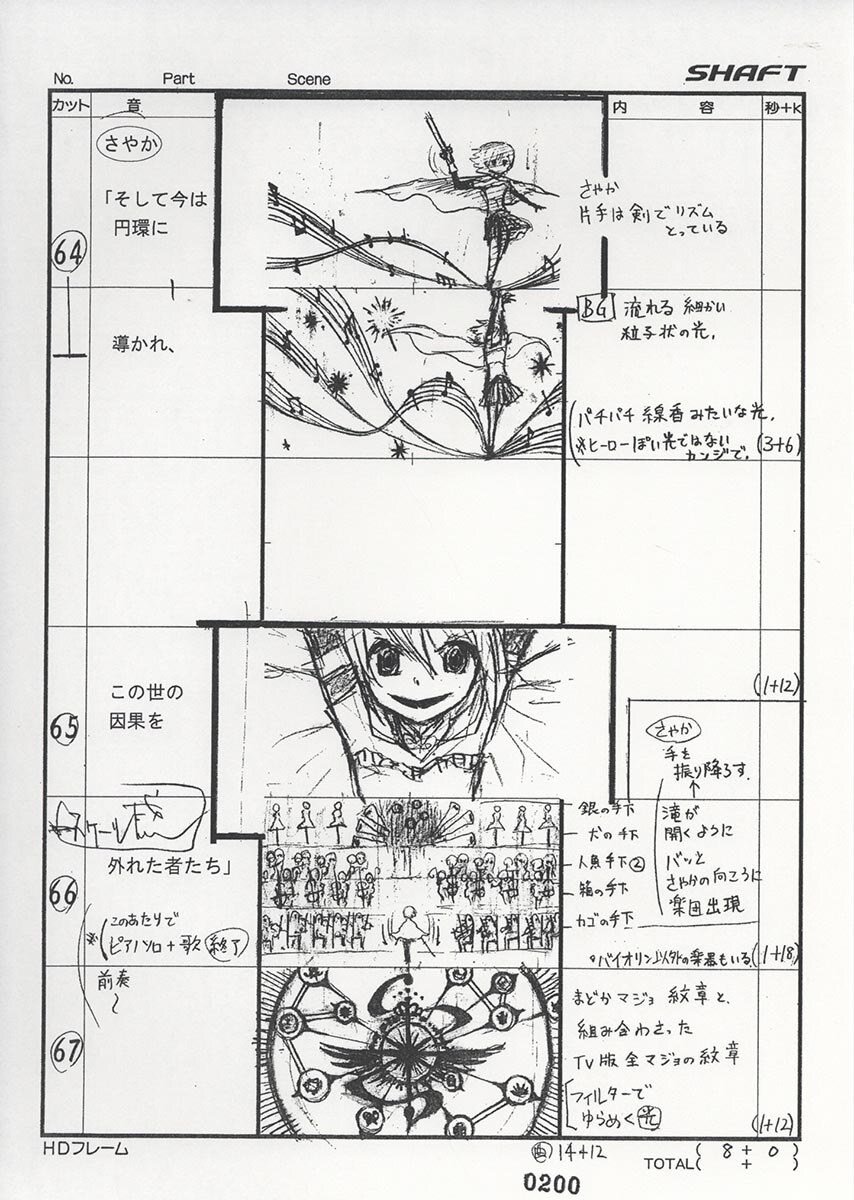 No. Part Scene
SHAFT
カット 音 内容 秒+K
64
さやか
「そして今は
円環に
さやか
片手は剣でリズム
とっている
導かれ、
BG 流れる 細かい
粒子状の光。
パチパチ 線香みたいな光。
※ヒーローぽい光ではない
カンジで。
(3+6)
65
この世の
因果を
(1+12)
さやか
手を
振り降ろす。
滝が
開くように
バッと
さやかの向こうに
楽団出現
66
スケール感
外れた者たち」
※(このあたりで
ピアノソロ+歌 終了)
銀の手下
犬の手下
人魚手下②
箱の手下
カゴの手下
。バイオリン以外の楽器もいる。
(1+18)
67
前奏
〜
まどかマジョ 紋章と、
組み合わさった
TV版全マジョの紋章
フィルターで
ゆらめく光
(1+12)
HDフレーム
14+12
TOTAL
( 8 + 0 )
( + )
0200